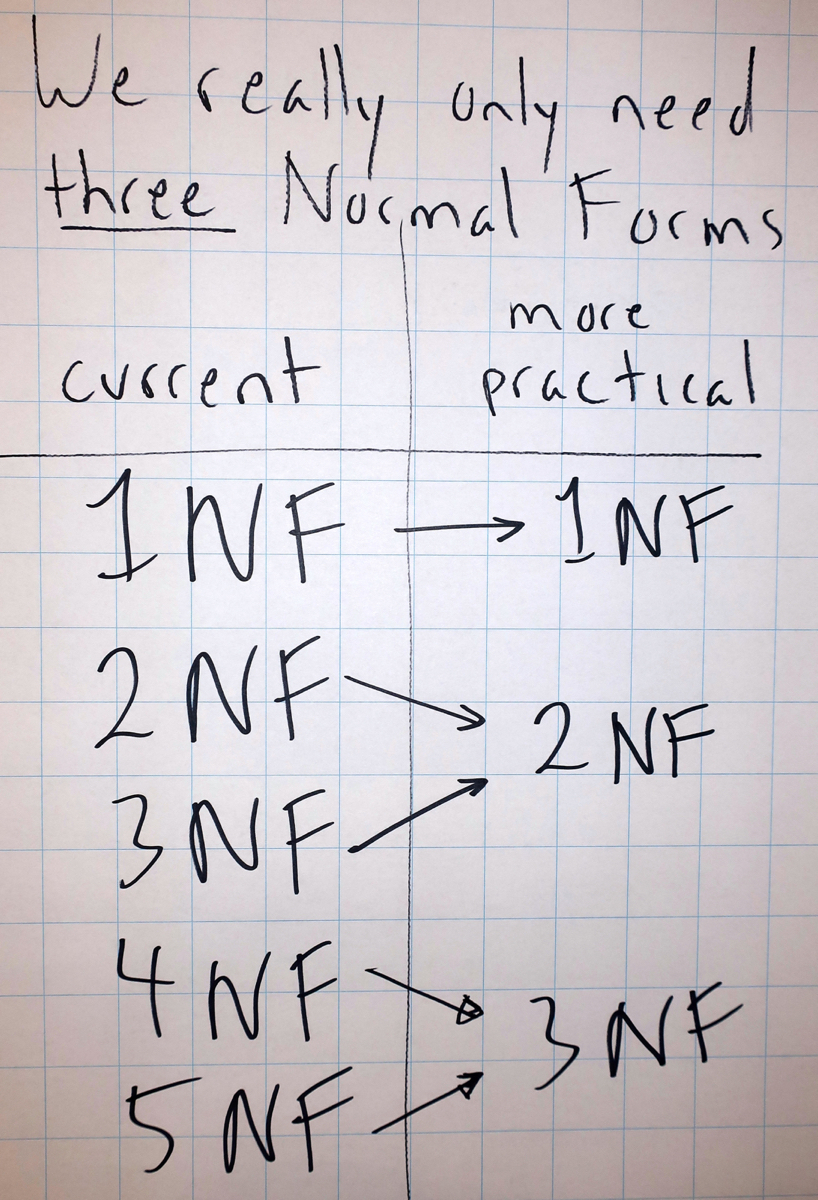 We really only need
three Normal Forms
more
current practical
1NF → 1NF
2NF
2NF
3NF
4NF
3NF
5NF